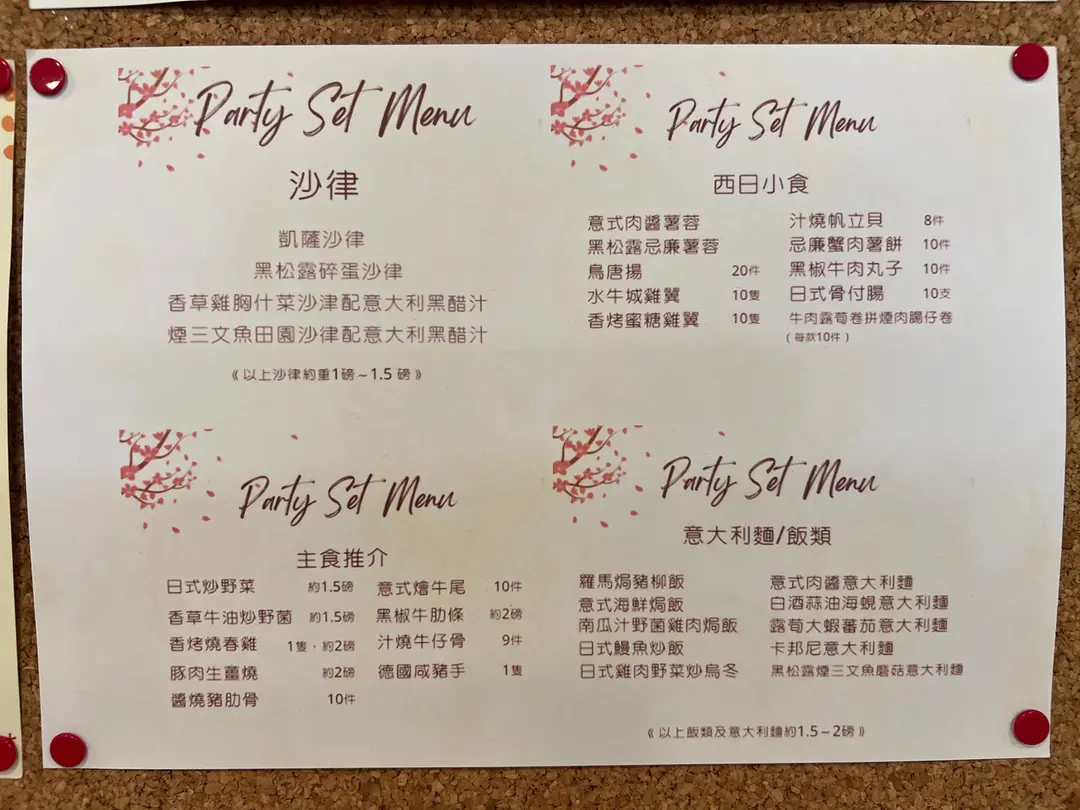 Party Set Menu
沙律
凱薩沙律
黑松露碎蛋沙律
香草雞胸什菜沙津配意大利黑醋汁
煙三文魚田園沙律配意大利黑醋汁
《以上沙律約重1磅~1.5 磅》
Party Set Menu
西日小食
意式肉醬薯蓉
黑松露忌廉薯蓉
鳥唐揚 20件
水牛城雞翼 10隻
香烤蜜糖雞翼 10隻
汁燒帆立貝 8件
忌廉蟹肉薯餅 10件
黑椒牛肉丸子 10件
日式骨付腸 10支
牛肉露荀卷拼煙肉腸仔卷
(每款10件)
Party Set Menu
主食推介
日式炒野菜 約1.5磅
香草牛油炒野菌 約1.5磅
香烤燒春雞 1隻，約2磅
豚肉生薑燒 約2磅
醬燒豬肋骨 10件
意式燴牛尾 10件
黑椒牛肋條 約2磅
汁燒牛仔骨 9件
德國咸豬手 1隻
Party Set Menu
意大利麵/飯類
羅馬焗豬柳飯
意式海鮮焗飯
南瓜汁野菌雞肉焗飯
日式鰻魚炒飯
日式雞肉野菜炒烏冬
意式肉醬意大利麵
白酒蒜油海蜆意大利麵
露荀大蝦蕃茄意大利麵
卡邦尼意大利麵
黑松露煙三文魚蘑菇意大利麵
《以上飯類及意大利麵約1.5~2磅》